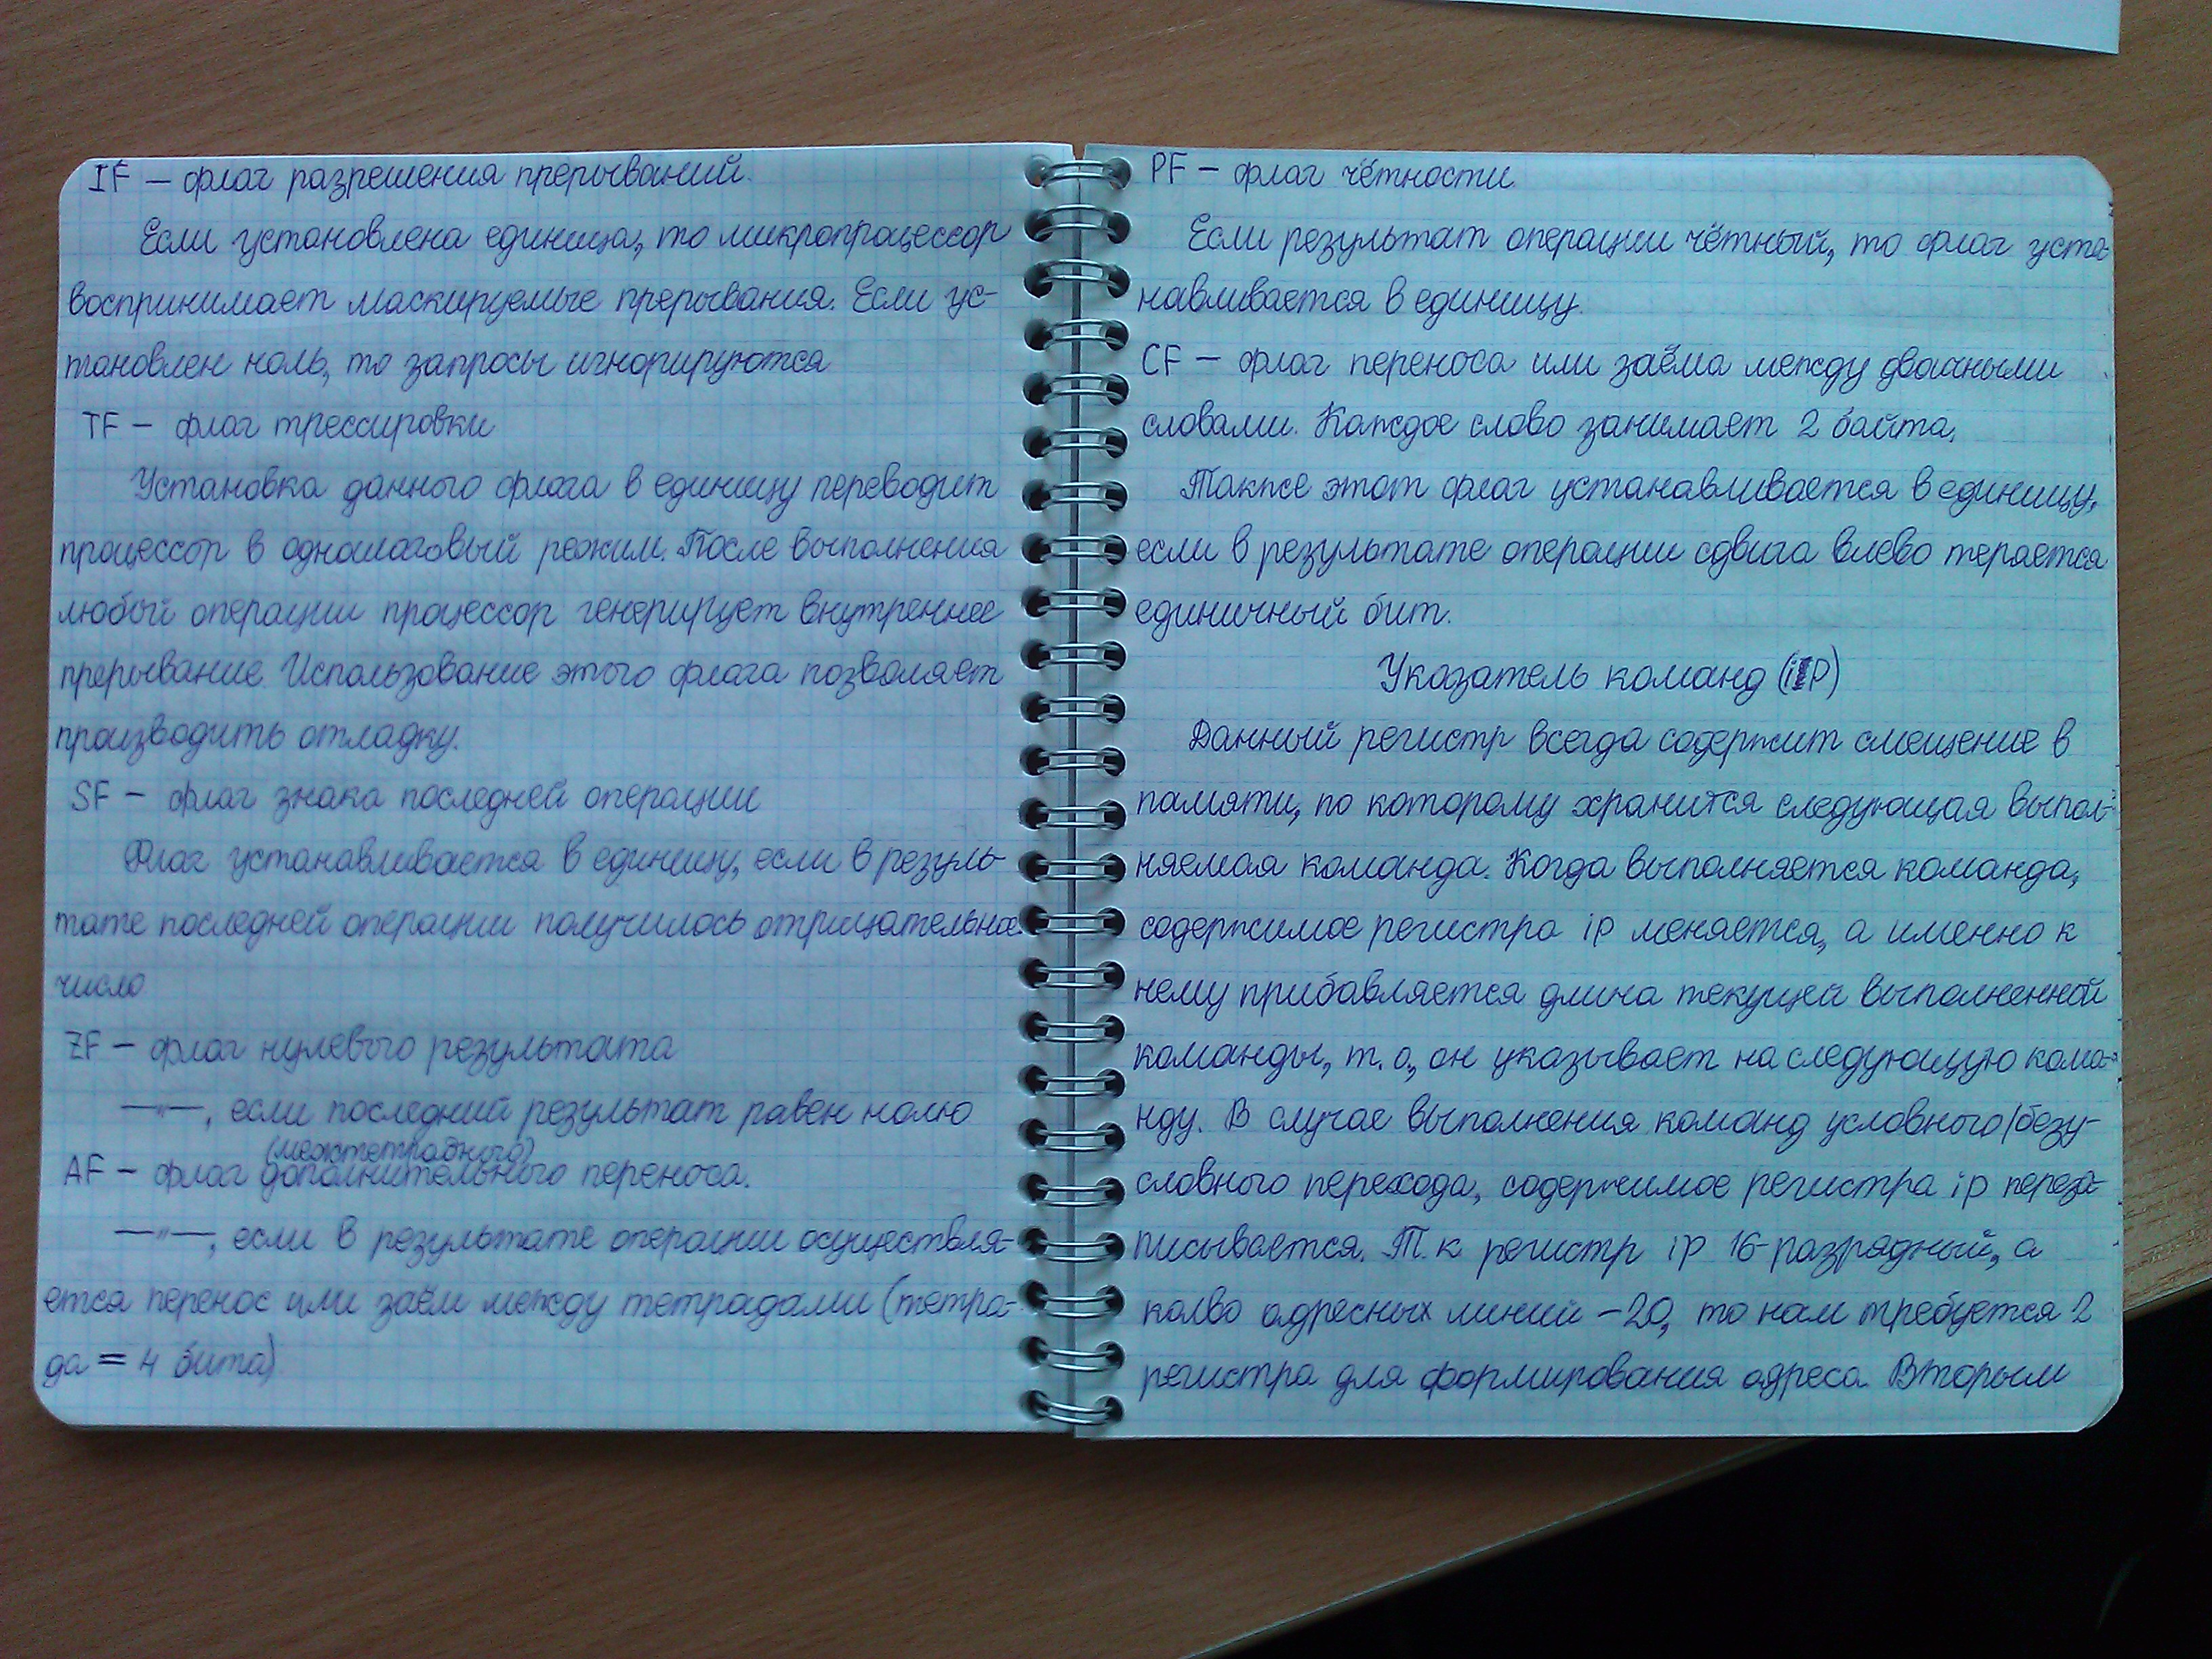 IF – флаг разрешения прерываний.
Если установлена единица, то микропроцессор
воспринимает маскируемые прерывания. Если ус-
тановлен ноль, то запросы игнорируются
TF – флаг трессировки
Установка данного флага в единицу переводит
процессор в одношаговый режим. После выполнения
любой операции процессор генерирует внутреннее
прерывание. Использование этого флага позволяет
производить отладку.
SF – флаг знака последней операции
Флаг устанавливается в единицу, если в резуль-
тате последней операции получилось отрицательное
число
ZF – флаг нулевого результата
—"—, если последний результат равен нолю
(межтетрадного)
AF – флаг дополнительного переноса.
—"—, если в результате операции осуществля-
ется перенос или заём между тетрадами (тетра-
да = 4 бита)
PF – флаг чётности
Если результат операции чётный, то флаг уста-
навливается в единицу.
CF – флаг переноса или заёма между двоичными
словами. Каждое слово занимает 2 байта.
Также этот флаг устанавливается в единицу,
если в результате операции сдвига влево теряется
единичный бит.
Указатель команд (IP)
Данный регистр всегда содержит смещение в
памяти, по которому хранится следующая выпол-
няемая команда. Когда выполняется команда,
содержимое регистра ip меняется, а именно к
нему прибавляется длина текущей выполненной
команды, т. о., он указывает на следующую кома-
нду. В случае выполнения команд условного/безу-
словного перехода, содержимое регистра ip переза-
писывается. Т. к регистр ip 16-разрядный, а
колво адресных линий – 20, то нам требуется 2
регистра для формирования адреса. Вторым